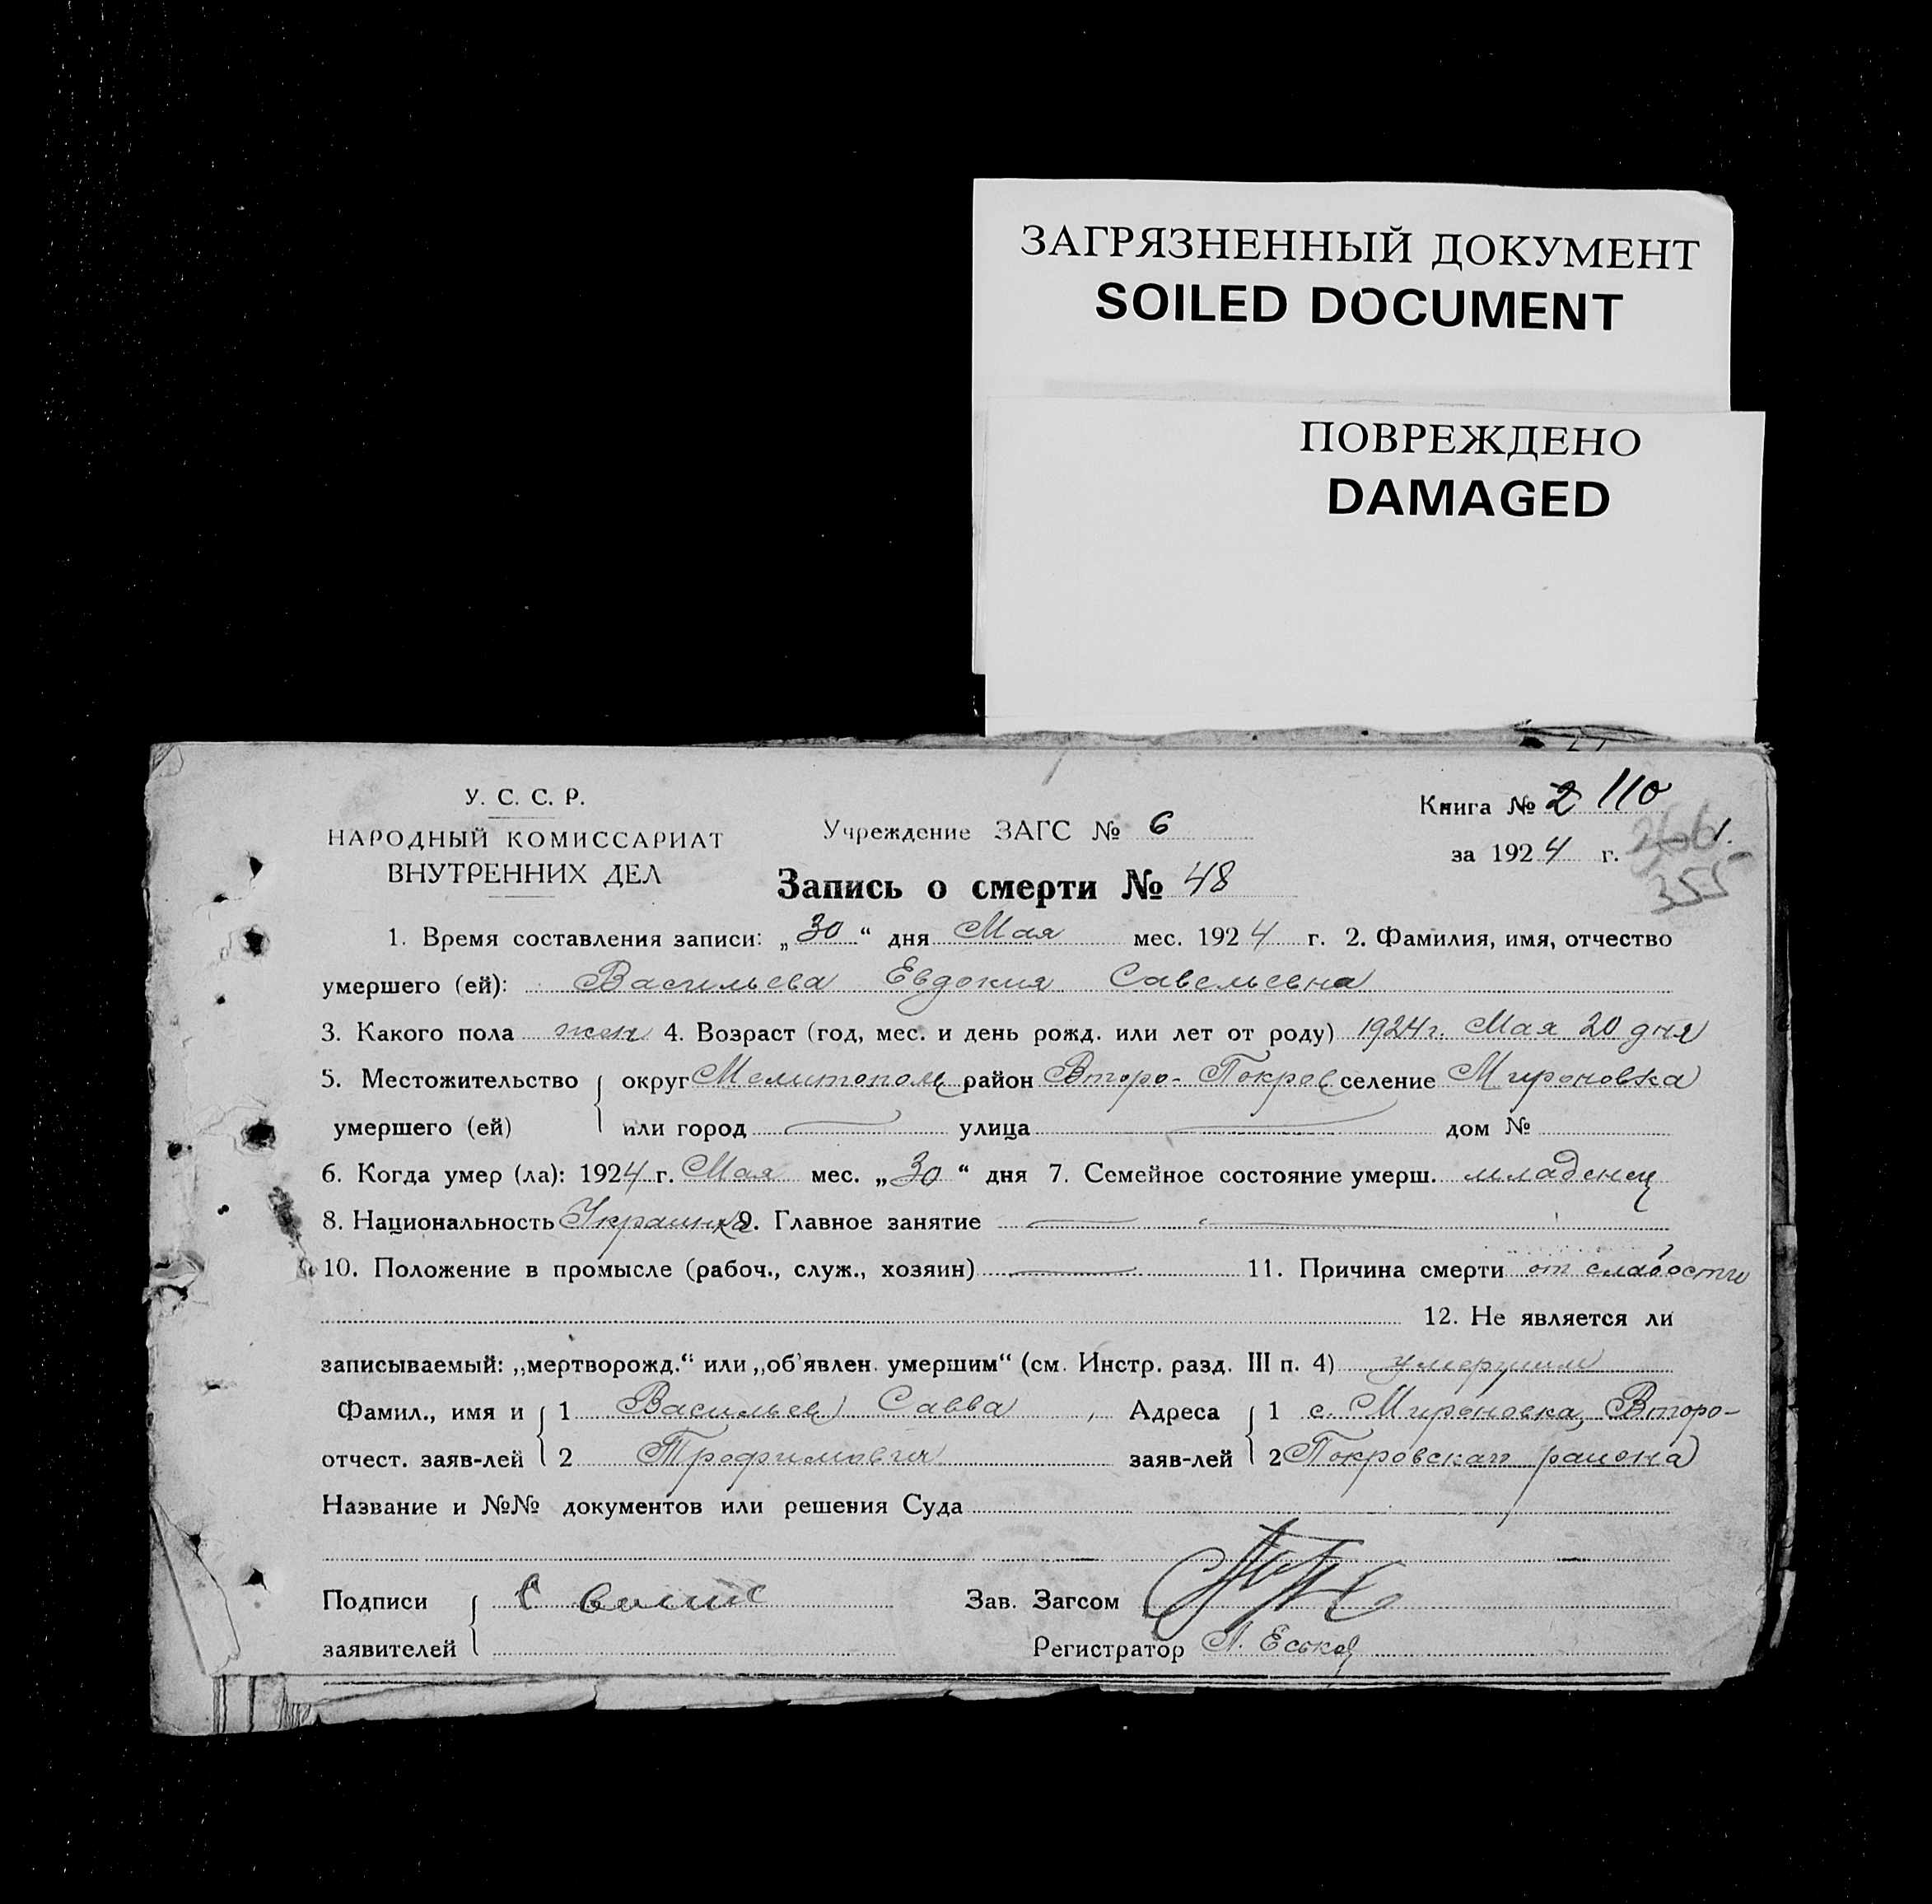 ЗАГРЯЗНЕННЫЙ ДОКУМЕНТ
SOILED DOCUMENT
ПОВРЕЖДЕНО
DAMAGED
У. С. С. Р.
НАРОДНЫЙ КОМИССАРИАТ
ВНУТРЕННИХ ДЕЛ
Учреждение ЗАГС № 6
Книга № 2 110
за 1924 г.
266
355
Запись о смерти № 48
1. Время составления записи: „30“ дня Мая мес. 1924 г. 2. Фамилия, имя, отчество
умершего (ей): Васильева Евдокия Савельевна
3. Какого пола жен 4. Возраст (год, мес. и день рожд. или лет от роду) 1924 г. Мая 20 дня
5. Местожительство округ Мелитополь район Второ-Покров селение Мироновка
умершего (ей) или город улица дом №
6. Когда умер (ла): 1924 г. Мая мес. „30“ дня 7. Семейное состояние умерш. младенец
8. Национальность Украинка 9. Главное занятие
10. Положение в промысле (рабоч., служ., хозяин) 11. Причина смерти от слабости
12. Не является ли
записываемый: „мертворожд.“ или „об'явлен умершим“ (см. Инстр. разд. III п. 4) умершим
Фамил., имя и 1 Васильев Савва Адреса 1 с. Мироновка, Второ-
отчест. заяв-лей 2 Трофимович заяв-лей 2 Покровскаго района
Название и №№ документов или решения Суда
Подписи Зав. Загсом
заявителей Регистратор А. Еськов